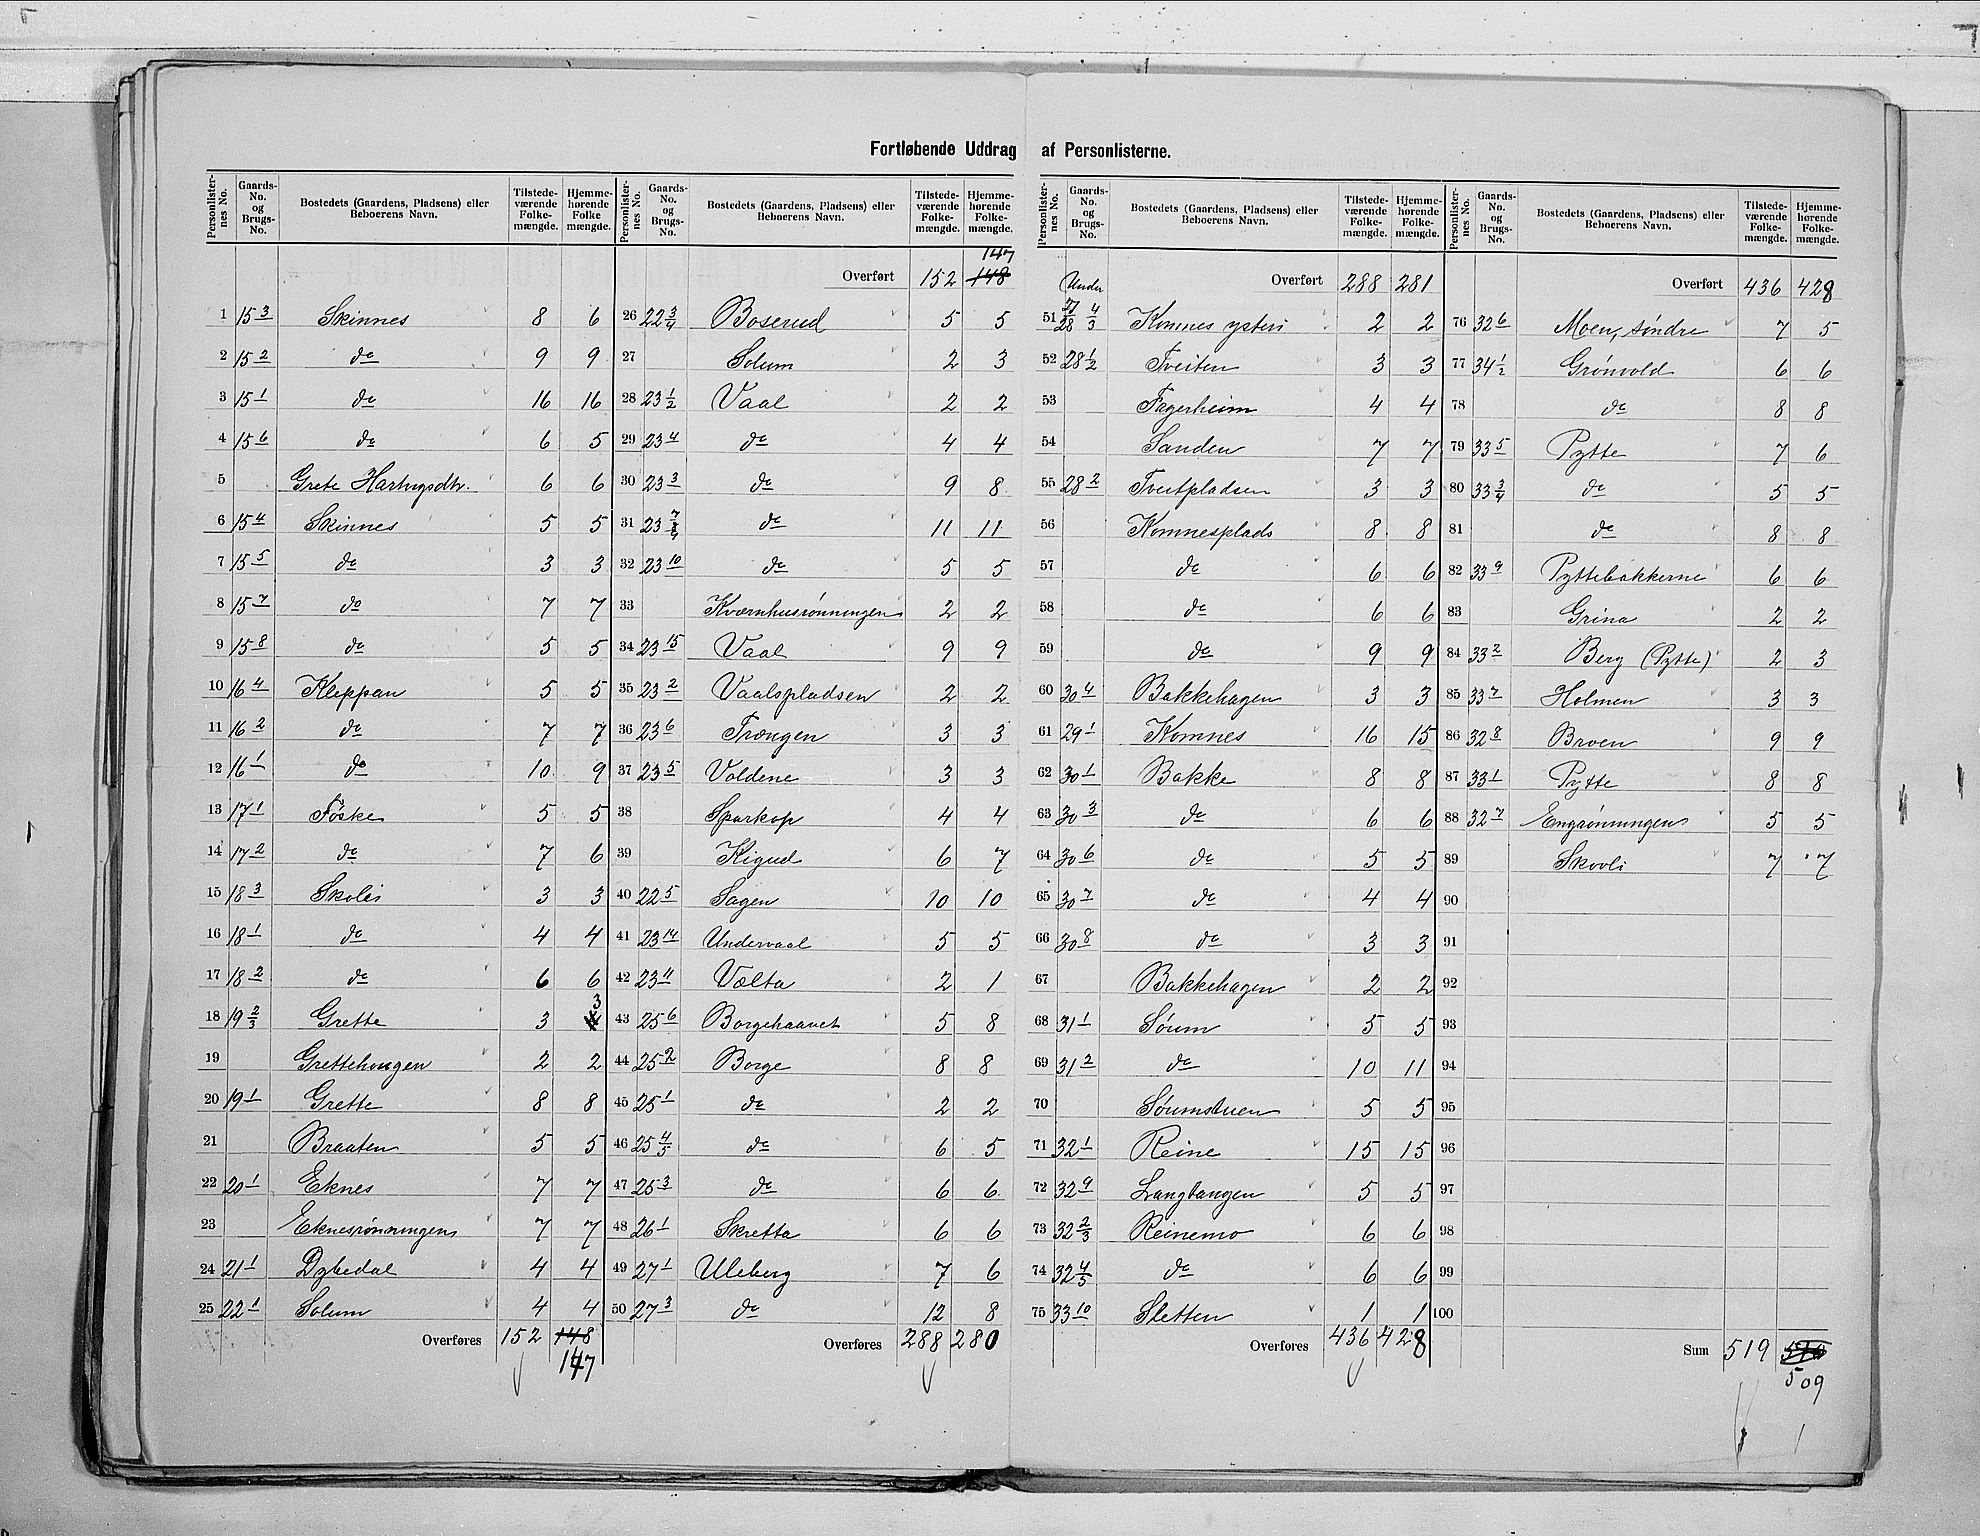 Fortløbende Uddrag af Personlisterne.
Personlister-nes No. Gaards-No. og Brugs-No. Bostedets (Gaardens, Pladsens) eller Beboerens Navn. Tilstede-værende Folke-mængde. Hjemme-hørende Folke mængde.
1 15 3 Skinnes 8 6
2 15 2 do 9 9
3 15 1 do 16 16
4 15 6 do 6 5
5 Grete Hartvigsdtr. 6 6
6 15 4 Skinnes 5 5
7 15 5 do 3 3
8 15 7 do 7 7
9 15 8 do 5 5
10 16 4 Kleppan 5 5
11 16 2 do 7 7
12 16 1 do 10 9
13 17 1 Föske 5 5
14 17 2 do 7 6
15 18 3 Skolis 3 3
16 18 1 do 4 4
17 18 2 do 6 6
18 19 2/3 Grette 3 3
19 Grettehaugen 2 2
20 19 1 Grette 8 8
21 Braaten 5 5
22 20 1 Eknes 7 7
23 Eknesrønningen 7 7
24 21 1 Dybedal 4 4
25 22 1 Solum 4 4
Overføres 152 148
147
Personlister-nes No. Gaards-No. og Brugs-No. Bostedets (Gaardens, Pladsens) eller Beboerens Navn. Tilstede-værende Folke-mængde. Hjemme-hørende Folke-mængde.
147
Overført 152 148
26 22 3/4 Boserud 5 5
27 Solum 2 3
28 23 1/2 Vaal 2 2
29 23 4 do 4 4
30 23 3 do 9 8
31 23 7/8/9 do 11 11
32 23 10 do 5 5
33 Kværnhusrønningen 2 2
34 23 15 Vaal 9 9
35 23 2 Vaalspladsen 2 2
36 23 6 Trængen 3 3
37 23 5 Voldene 3 3
38 Sparkop 4 4
39 Kigud 6 7
40 22 5 Sagen 10 10
41 23 14 Undervaal 5 5
42 23 11 Vælta 2 1
43 25 6 Borgehaavet 5 8
44 25 2 Borge 8 8
45 25 1 do 2 2
46 25 4/5 do 6 5
47 25 3 do 6 6
48 26 1 Skretta 6 6
49 27 1 Uleberg 7 6
50 27 3 do 12 8
Overføres 288 280
Personlister-nes No. Gaards-No. og Brugs-No. Bostedets (Gaardens, Pladsens) eller Beboerens Navn. Tilstede-værende Folke-mængde. Hjemme-hørende Folke-mængde.
Under
Overført 288 281
51 28 4/3 Komnes ysteri 2 2
52 28 1/2 Tveiten 3 3
53 Fagerheim 4 4
54 Sanden 7 7
55 28 2 Tveitpladsen 3 3
56 Komnesplads 8 8
57 do 6 6
58 do 6 6
59 do 9 9
60 30 4 Bakkehagen 3 3
61 29 1 Komnes 16 15
62 30 1 Bakke 8 8
63 30 3 do 6 6
64 30 6 do 5 5
65 30 7 do 4 4
66 30 8 do 3 3
67 Bakkehagen 2 2
68 31 1 Søum 5 5
69 31 2 do 10 11
70 Søumstuen 5 5
71 32 1 Reine 15 15
72 32 9 Langtangen 5 5
73 32 2/3 Reinemo 6 6
74 32 4/5 do 6 6
75 33 10 Sletten 1 1
Overføres 436 428
Personlister-nes No. Gaards-No. og Brugs-No. Bostedets (Gaardens, Pladsens) eller Beboerens Navn. Tilstede-værende Folke-mængde. Hjemme-hørende Folke-mængde.
Overført 436 428
76 32 6 Moen, søndre 7 5
77 34 1/2 Grønvold 6 6
78 do 8 8
79 33 5 Pytte 7 6
80 33 3/4 do 5 5
81 do 8 8
82 33 9 Pyttebakkerne 6 6
83 Grina 2 2
84 33 2 Berg (Pytte) 2 3
85 33 7 Holmen 3 3
86 32 8 Broen 9 9
87 33 1 Pytte 8 8
88 32 7 Engrønningen 5 5
89 Skovli 7 7
90
91
92
93
94
95
96
97
98
99
100
Sum 519
509